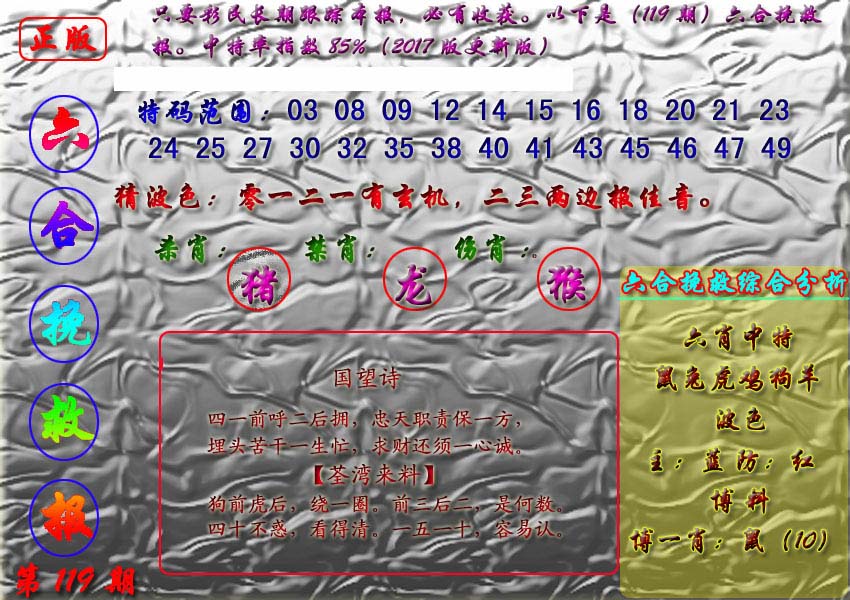 正版
只要彩民长期跟踪本报，必有收获。以下是（119期）六合挽救
报。中特率指数85%（2017版更新版）
六合挽救报
第119期
特码范围：03 08 09 12 14 15 16 18 20 21 23
24 25 27 30 32 35 38 40 41 43 45 46 47 49
猜波色：零一二一有玄机，二三两边报佳音。
杀肖：猪 禁肖：龙 伤肖：猴
国望诗
四一前呼二后拥，忠天职责保一方，
埋头苦干一生忙，求财还须一心诚。
【荃湾来料】
狗前虎后，绕一圈。前三后二，是何数。
四十不惑，看得清。一五一十，容易认。
六合挽救综合分析
六肖中特
鼠兔虎鸡狗羊
波色
主：蓝防：红
博料
博一肖：鼠（10）